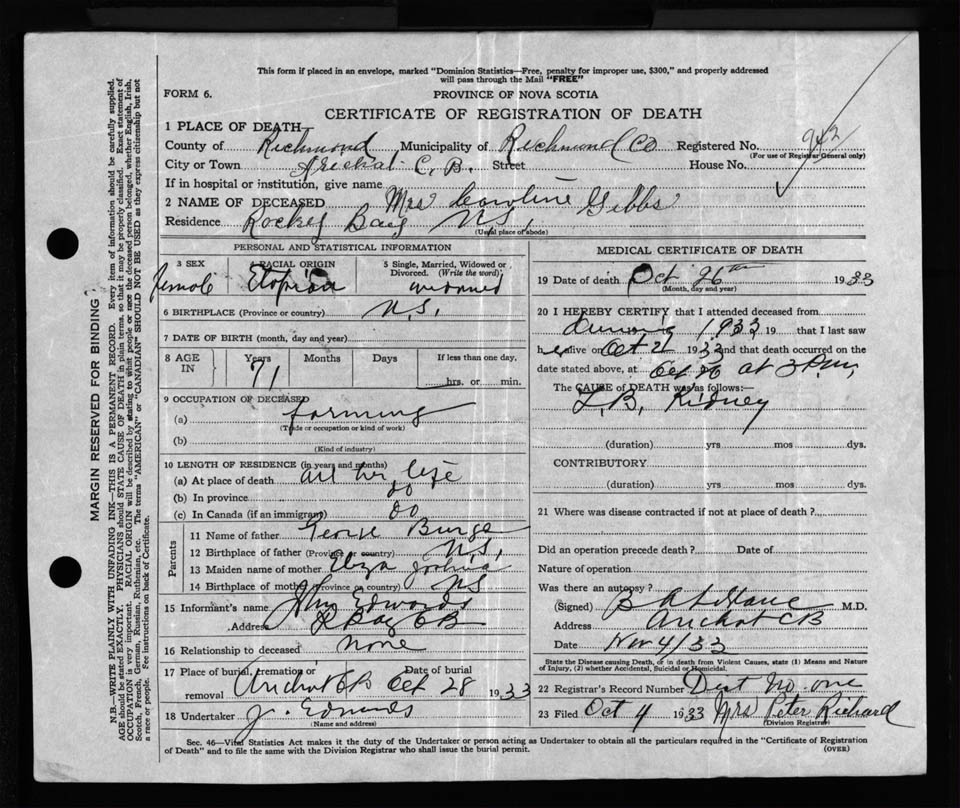 This form if placed in an envelope, marked "Dominion Statistics—Free, penalty for improper use, $300," and properly addressed
will pass through the Mail "FREE"
FORM 6.
PROVINCE OF NOVA SCOTIA
CERTIFICATE OF REGISTRATION OF DEATH
1 PLACE OF DEATH
County of Richmond Municipality of Richmond Co Registered No. 942
(For use of Registrar General only)
City or Town Arichat C.B. Street House No.
If in hospital or institution, give name
2 NAME OF DECEASED Mrs Caroline Gibbs
Residence Rocky Bay N.S.
(Usual place of abode)
PERSONAL AND STATISTICAL INFORMATION
3 SEX 4 RACIAL ORIGIN 5 Single, Married, Widowed or
Divorced. (Write the word)
female Etopian
6 BIRTHPLACE (Province or country) N.S.
7 DATE OF BIRTH (month, day and year)
8 AGE IN Years Months Days If less than one day,
71 hrs. or min.
9 OCCUPATION OF DECEASED
(a) farming
(Trade or occupation or kind of work)
(b)
(Kind of industry)
10 LENGTH OF RESIDENCE (in years and months)
(a) At place of death all her life
(b) In province do
(c) In Canada (if an immigrant) do
Parents
11 Name of father George Burge
12 Birthplace of father (Province or country) N.S.
13 Maiden name of mother Eliza Joshua
14 Birthplace of mother (Province or country) NS
15 Informant's name John Edwards
Address R Bay CB
16 Relationship to deceased none
17 Place of burial, cremation or removal Arichat CB Date of burial Oct 28 1933
18 Undertaker J. Edmunds
(Name and address)
MEDICAL CERTIFICATE OF DEATH
19 Date of death Oct 26th 1933
(Month, day and year)
20 I HEREBY CERTIFY that I attended deceased from
during 1933 19 that I last saw
her alive on Oct 21 1933 and that death occurred on the
date stated above, at Oct 26 at 3 P.m,
The CAUSE of DEATH was as follows:—
T.B. Kidney
(duration) yrs mos dys.
CONTRIBUTORY
(duration) yrs mos dys.
21 Where was disease contracted if not at place of death?
Did an operation precede death? Date of
Nature of operation
Was there an autopsy?
(Signed) B A M.D.
Address Arichat CB
Date Nov 4/33
State the Disease causing Death, or in death from Violent Causes, state (1) Means and Nature
of Injury, (2) whether Accidental, Suicidal or Homicidal.
22 Registrar's Record Number Dist No. one
23 Filed Oct 4 1933 Mrs Peter Richard
(Division Registrar)
Sec. 46—Vital Statistics Act makes it the duty of the Undertaker or person acting as Undertaker to obtain all the particulars required in the "Certificate of Registration
of Death" and to file the same with the Division Registrar who shall issue the burial permit.
(OVER)
MARGIN RESERVED FOR BINDING
N.B.—WRITE PLAINLY WITH UNFADING INK—THIS IS A PERMANENT RECORD. Every item of information should be carefully supplied.
AGE should be stated EXACTLY. PHYSICIANS should STATE CAUSE OF DEATH in plain terms, so that it may be properly classified. Exact statement of
OCCUPATION is very important. RACIAL ORIGIN will be described by stating to what people or race the deceased person belonged, whether English, Irish,
Scotch, French, German, Russian, Ruthenian, etc. The terms "AMERICAN" or "CANADIAN" SHOULD NOT BE USED as they express citizenship but not
a race or people. See instructions on back of Certificate.